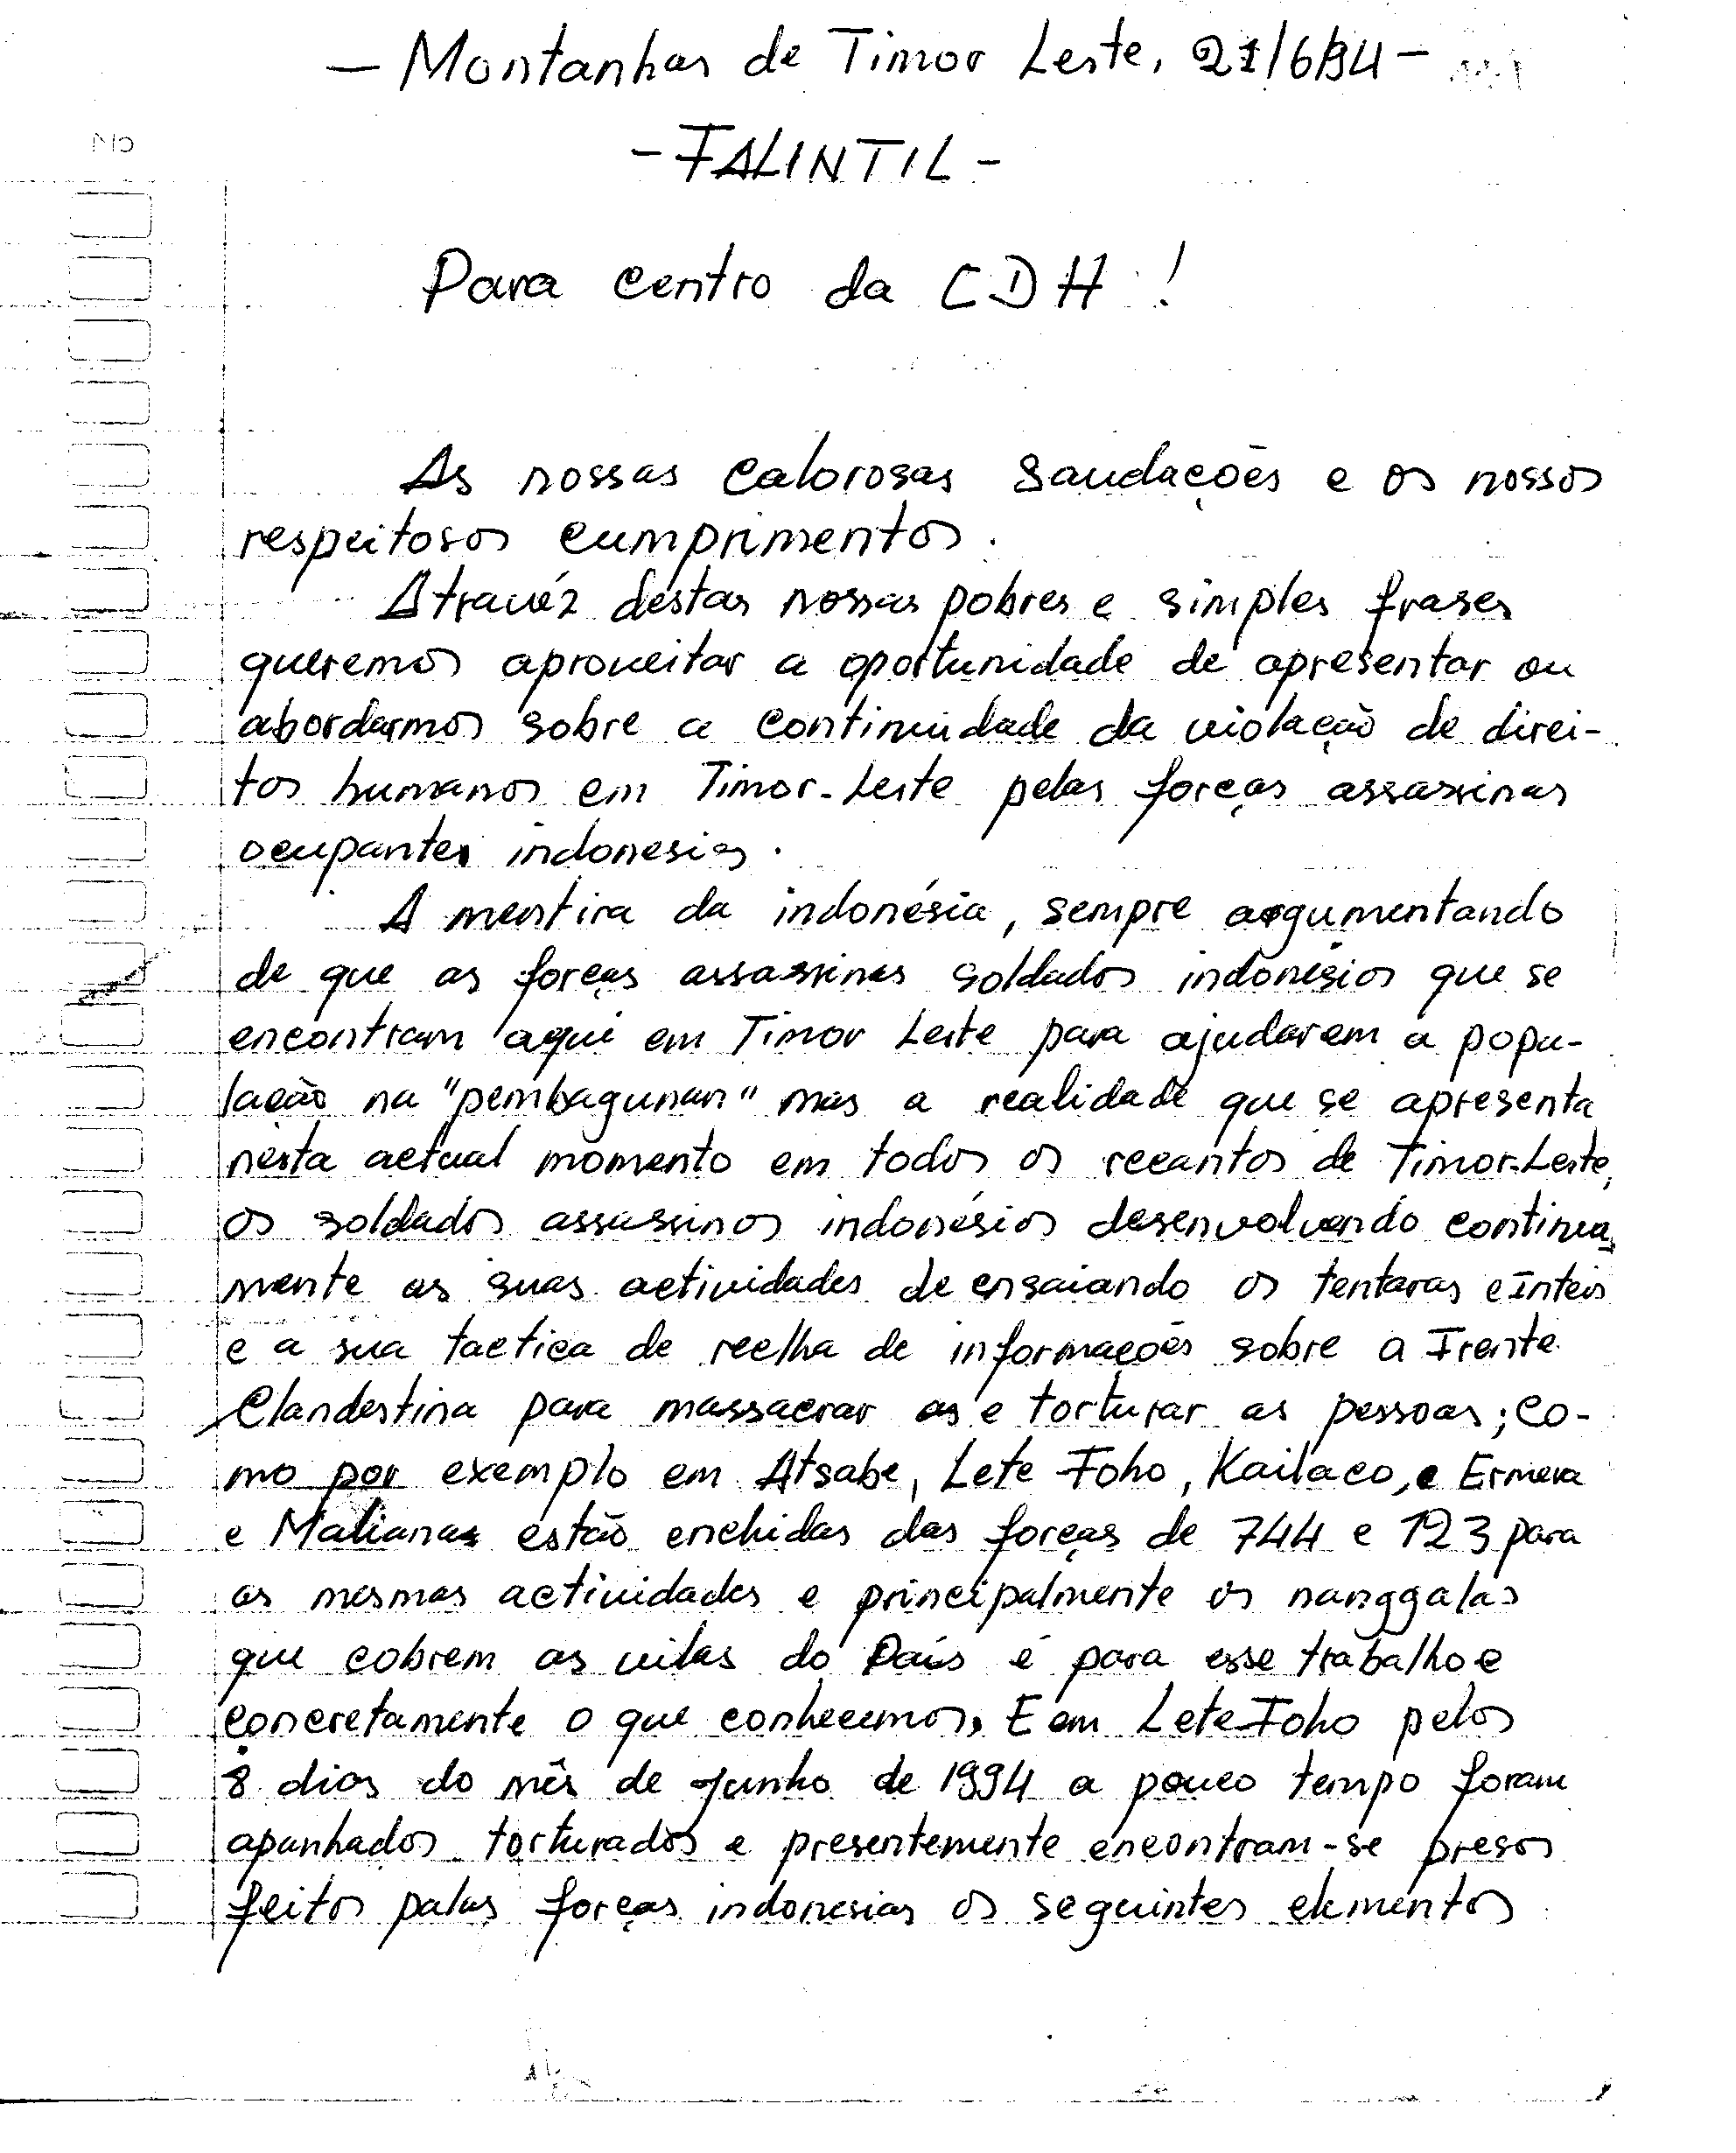 — Montanhas de Timor Leste, 21/6/94 —
- FALINTIL -
Para centro da CDH !
As nossas calorosas saudações e os nossos
respeitosos cumprimentos.
Atravéz destas nossas pobres e simples frases
queremos aproveitar a oportunidade de apresentar ou
abordarmos sobre a continuidade da violação de direi-
tos humanos em Timor-Leste pelas forças assassinas
ocupantes indonesias.
A mentira da indonésia, sempre argumentando
de que as forças assassinas soldados indonésios que se
encontram aqui em Timor Leste para ajudarem a popu-
lação na "pembagunan" mas a realidade que se apresenta
nesta actual momento em todos os recantos de Timor-Leste,
os soldados assassinos indonésios desenvolvendo continua-
mente as suas actividades de ensaiando os tentaras e Inteis
e a sua tactica de recelha de informações sobre a Frente
Clandestina para massacrar as e torturar as pessoas; co-
mo por exemplo em Atsabe, Lete Foho, Kailaco, e Ermera
e Maliana estão enchidas das forças de 744 e 123 para
as mesmas actividades e principalmente os nanggalas
que cobrem as vilas do País é para esse trabalho e
concretamente o que conhecemos, E em Lete Foho pelos
8 dias do mês de Junho de 1994 a pouco tempo foram
apanhados torturados e presentemente encontram-se presos
feitos palas forças indonesias os seguintes elementos